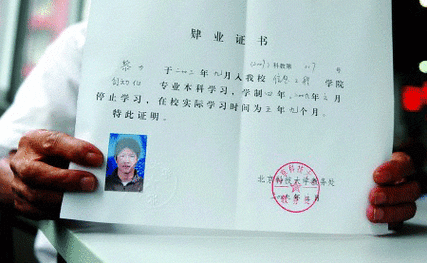 肄业证书
(2007)科教第 07 号
于二〇〇二年九月入我校信息工程学院
专业本科学习,学制四年,二〇〇六年 月
停止学习,在校实际学习时间为 年九个月。
特此证明。
北京科技大学教务处